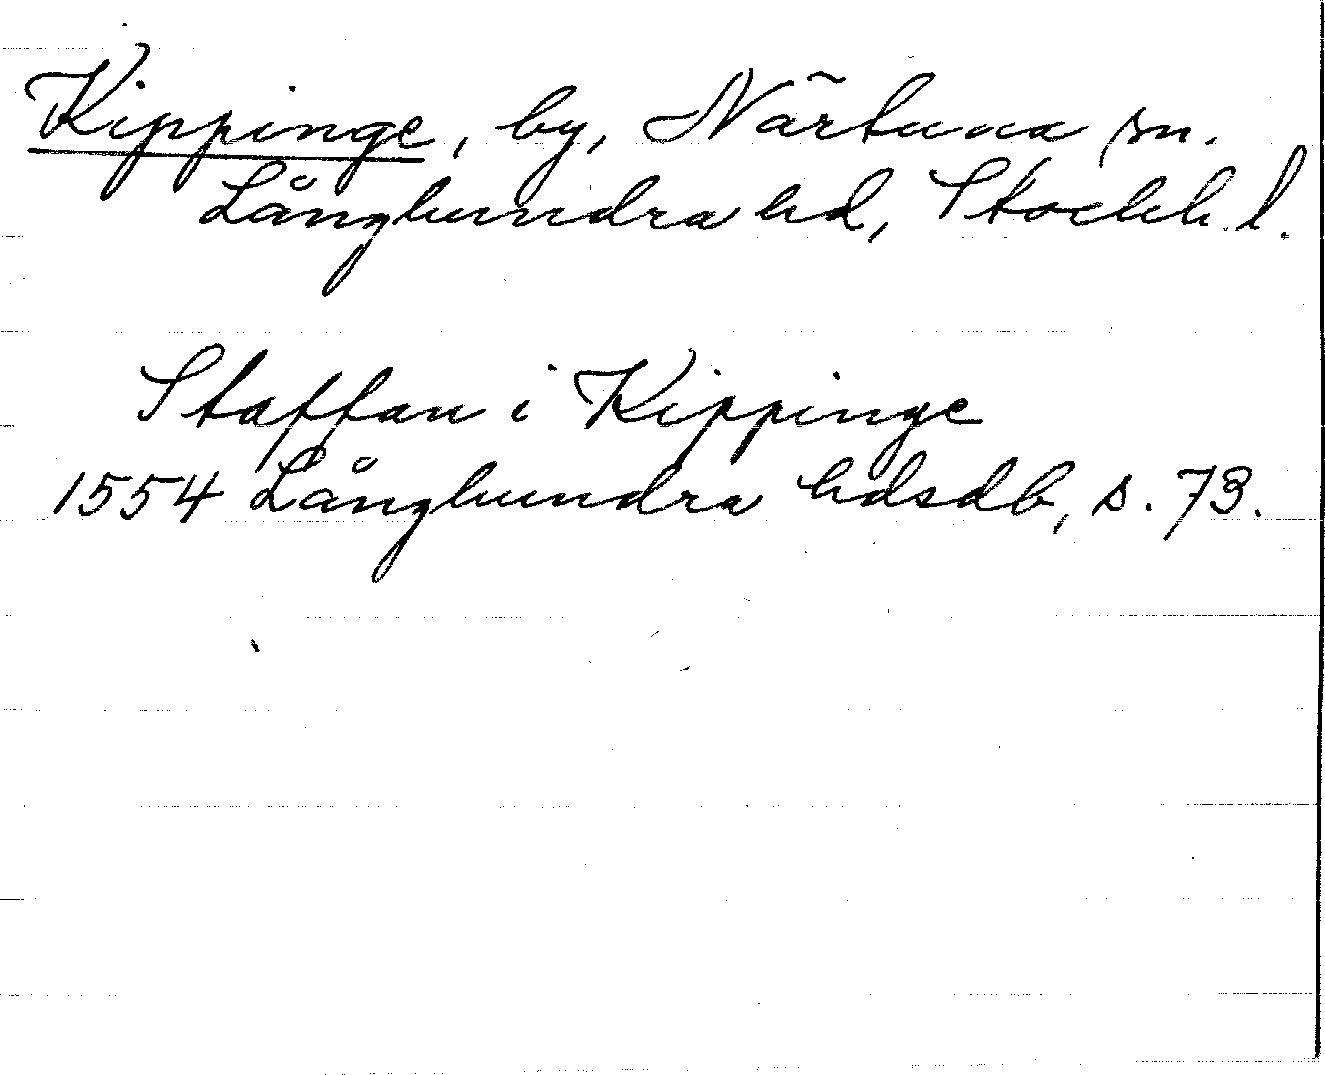 Kippinge, by, Närtuna sn.
Långhundra hd, Stockh. l.
Staffan i Kippinge
1554 Långhundra hdsdb, s. 73.